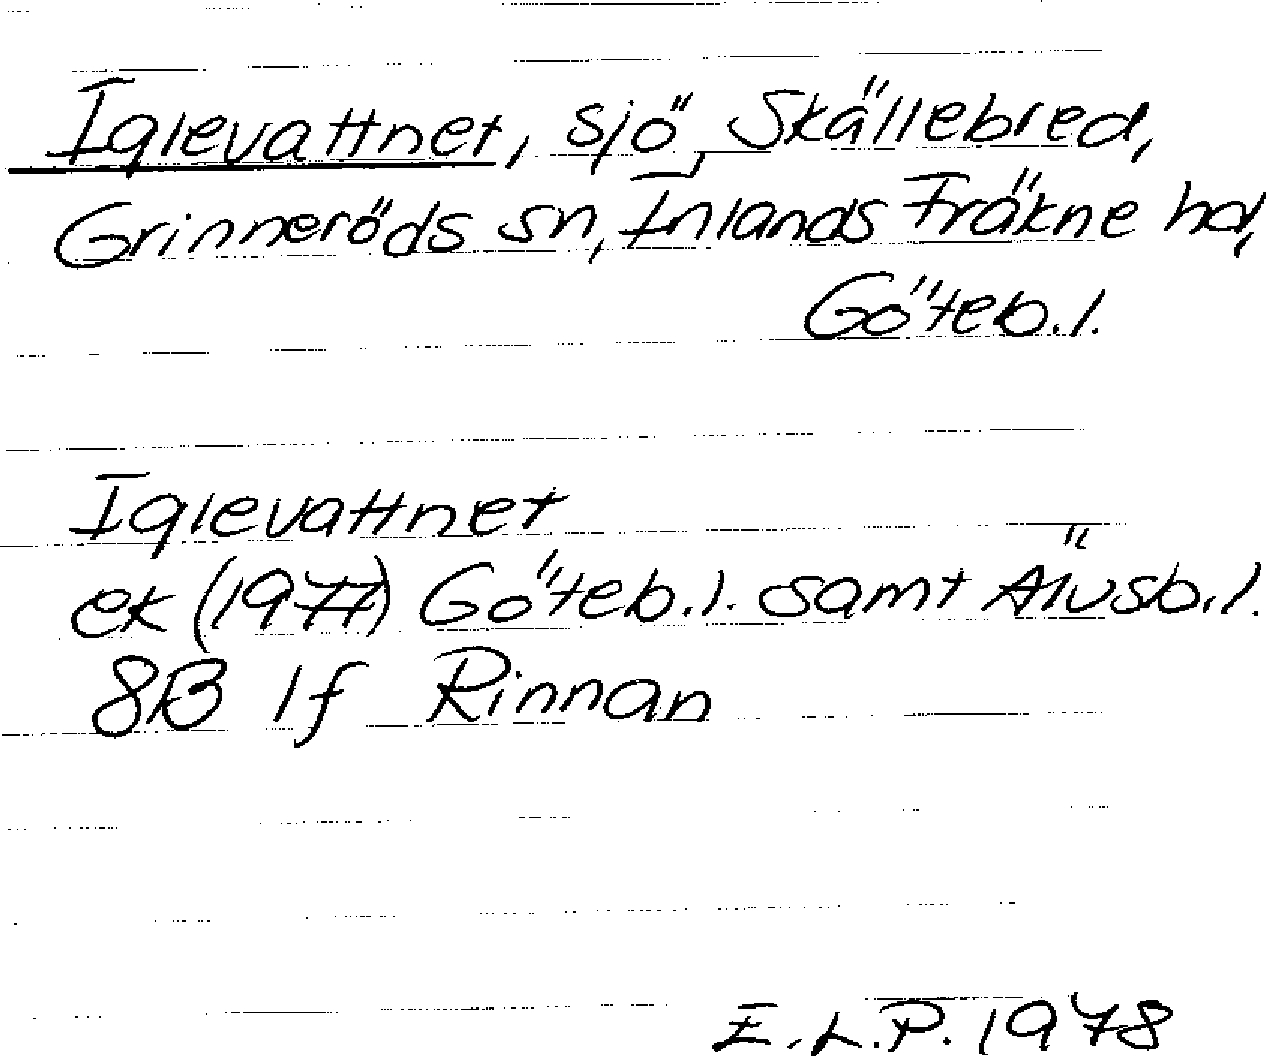 Iglevattnet, sjö, Skällebred,
Grinneröds sn, Inlands Fräkne hd,
Göteb.l.
Iglevattnet
ek (1977) Göteb.l. samt Älvsb.l.
8B 1f Rinnan
E.L.P. 1978